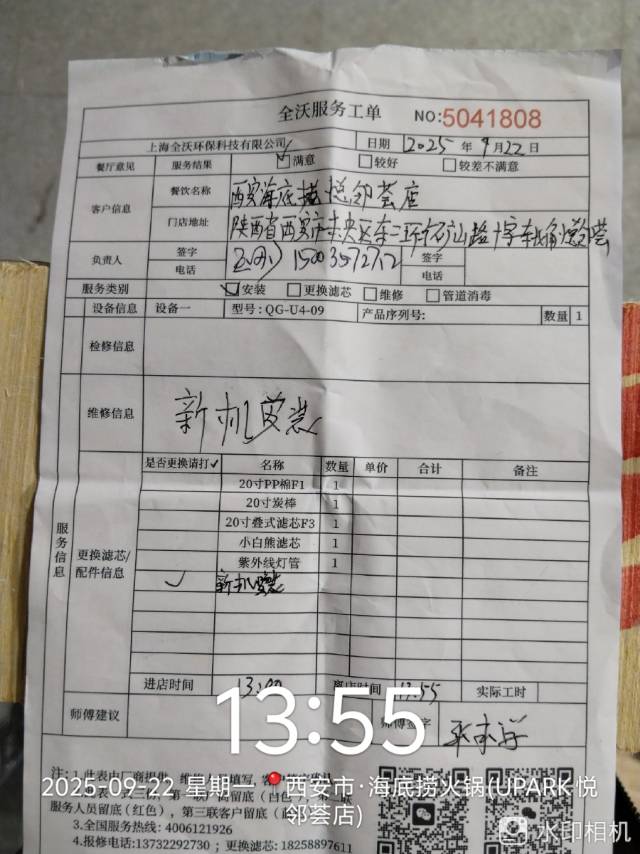 全沃服务工单 NO:5041808
上海全沃环保科技有限公司 日期 2025 年 9 月 22 日
餐厅意见 服务结果 ✓ 满意 较好 较差不满意
客户信息 餐饮名称 西安海底捞悦邻荟店
门店地址 陕西省西安市未央区东二环 路十字 悦邻荟
负责人 签字 签字
电话 电话
服务类别 ✓ 安装 更换滤芯 维修 管道消毒
设备信息 设备一 型号:QG-U4-09 产品序列号: 数量 1
检修信息
维修信息 新机安装
是否更换请打✓ 名称 数量 单价 合计 备注
20寸PP棉F1 1
20寸炭棒 1
20寸叠式滤芯F3 1
小白熊滤芯 1
紫外线灯管 1
✓ 新机安装
服务信息
更换滤芯/
配件信息
进店时间 13:00 离店时间 13:55 实际工时
师傅建议 师傅签字
13:55
2025-09-22 星期一 西安市·海底捞火锅(UPARK悦
邻荟店)
注:1.此表由厂商提供
服务人员留底(红色),第三联客户留底(
3.全国服务热线:4006121926
4.报修电话:13732292730;更换滤芯:18258897611
水印相机